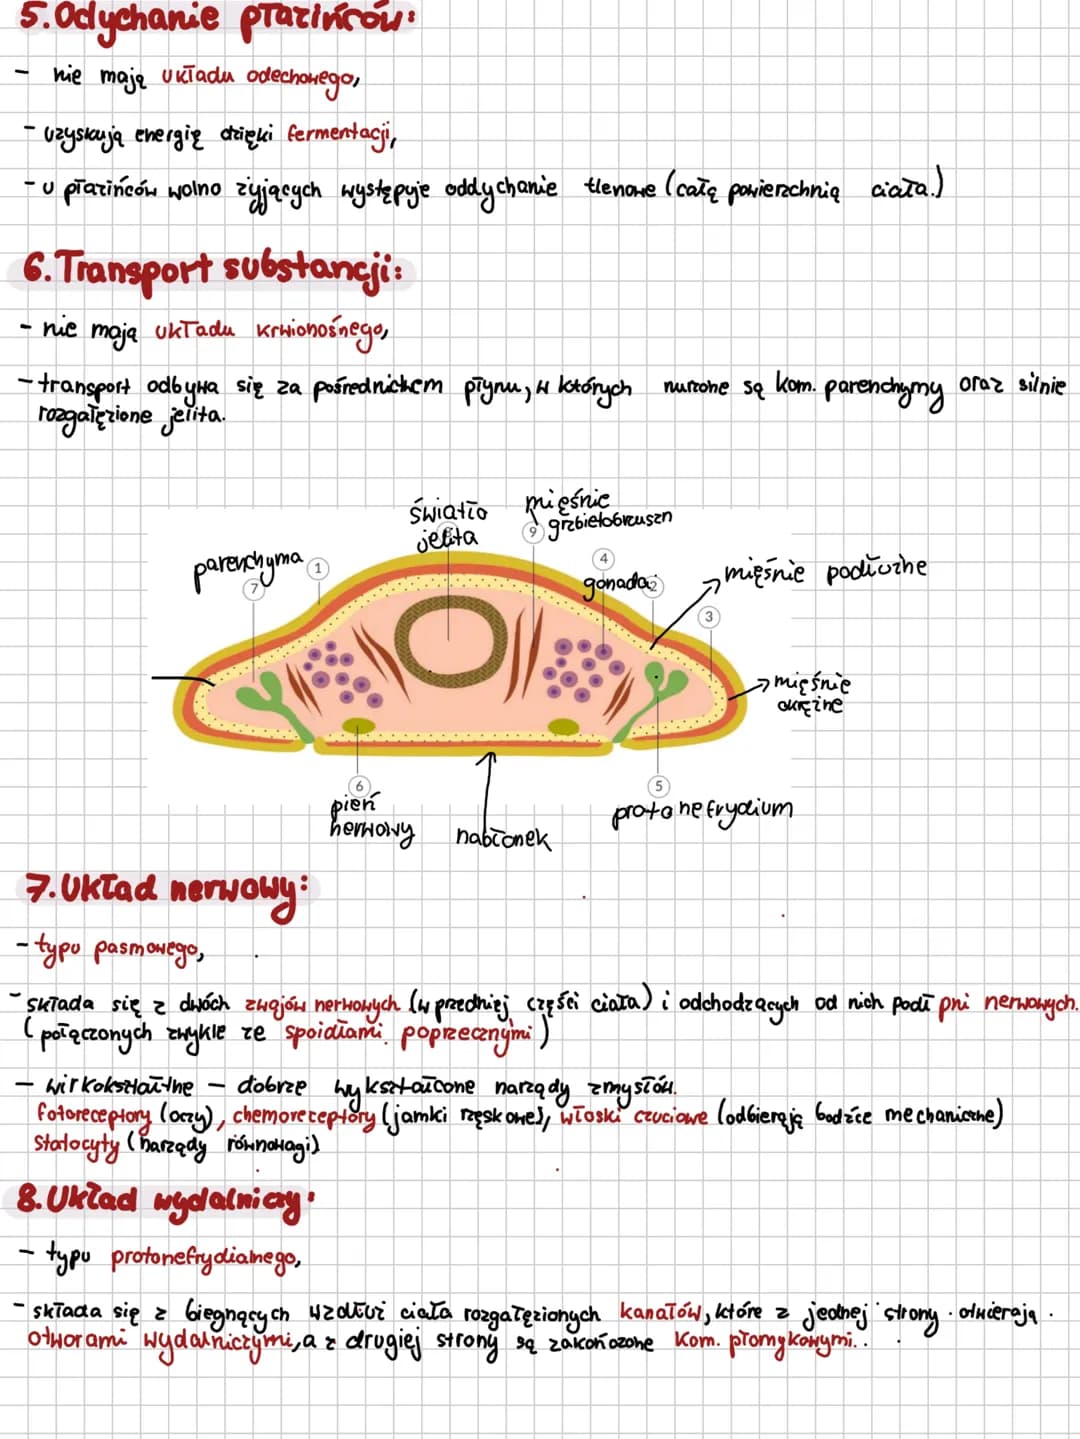 5. Odychanie płazińców:
- nie mają układu odechowego,
- uzyskują energię dzięki fermentacji,
- u płazińców wolno żyjących występuje oddychanie tlenowe (całą powierzchnią ciała.)
6. Transport substancji:
- nie mają układu krwionośnego,
- transport odbywa się za pośrednictwem płynu, w których nurzone są kom. parenchymy oraz silnie
rozgałęzione jelita.
światło
jelita
mięśnie
9 grzbietobrzuszn
parenchyma 1
7
4
gonada 2
mięśnie podłużne
3
mięśnie
okrężne
6
pień
nerwowy
nabłonek
5
protonefrydium
7. Układ nerwowy:
- typu pasmowego,
- składa się z dwóch zwojów nerwowych (w przedniej części ciała) i odchodzących od nich podł pni nerwowych.
(połączonych zwykle ze spoidłami poprzecznymi)
- wirkokształtne - dobrze wykształcone narządy zmysłów.
fotoreceptory (oczy), chemoreceptory (jamki rzęskowe), włoski czuciowe (odbierają bodźce mechaniczne)
Statocyty (narządy równowagi)
8. Układ wydalniczy:
- typu protonefrydialnego,
- składa się z biegnących wzdłuż ciała rozgałęzionych kanałów, które z jednej strony otwierają
otworami wydalniczymi, a z drugiej strony są zakończone kom. płomykowymi.